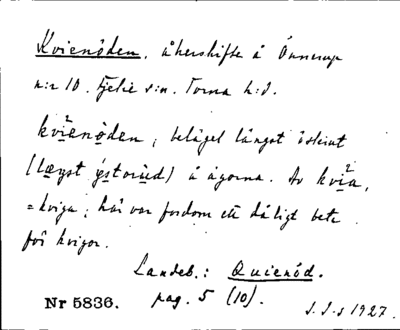 Kvienöden. åkerskifte å Önnerup
n:r 10. Fjelie s:n. Torna h:d.
kvienöden, beläget längst österut
(læyst ýstorud) å ägorna. Av kvia,
= kviga; här var fordom ett dåligt bete
för kvigor.
Landeb.: Quienöd.
Nr 5836. pag. 5 (10).
1927.